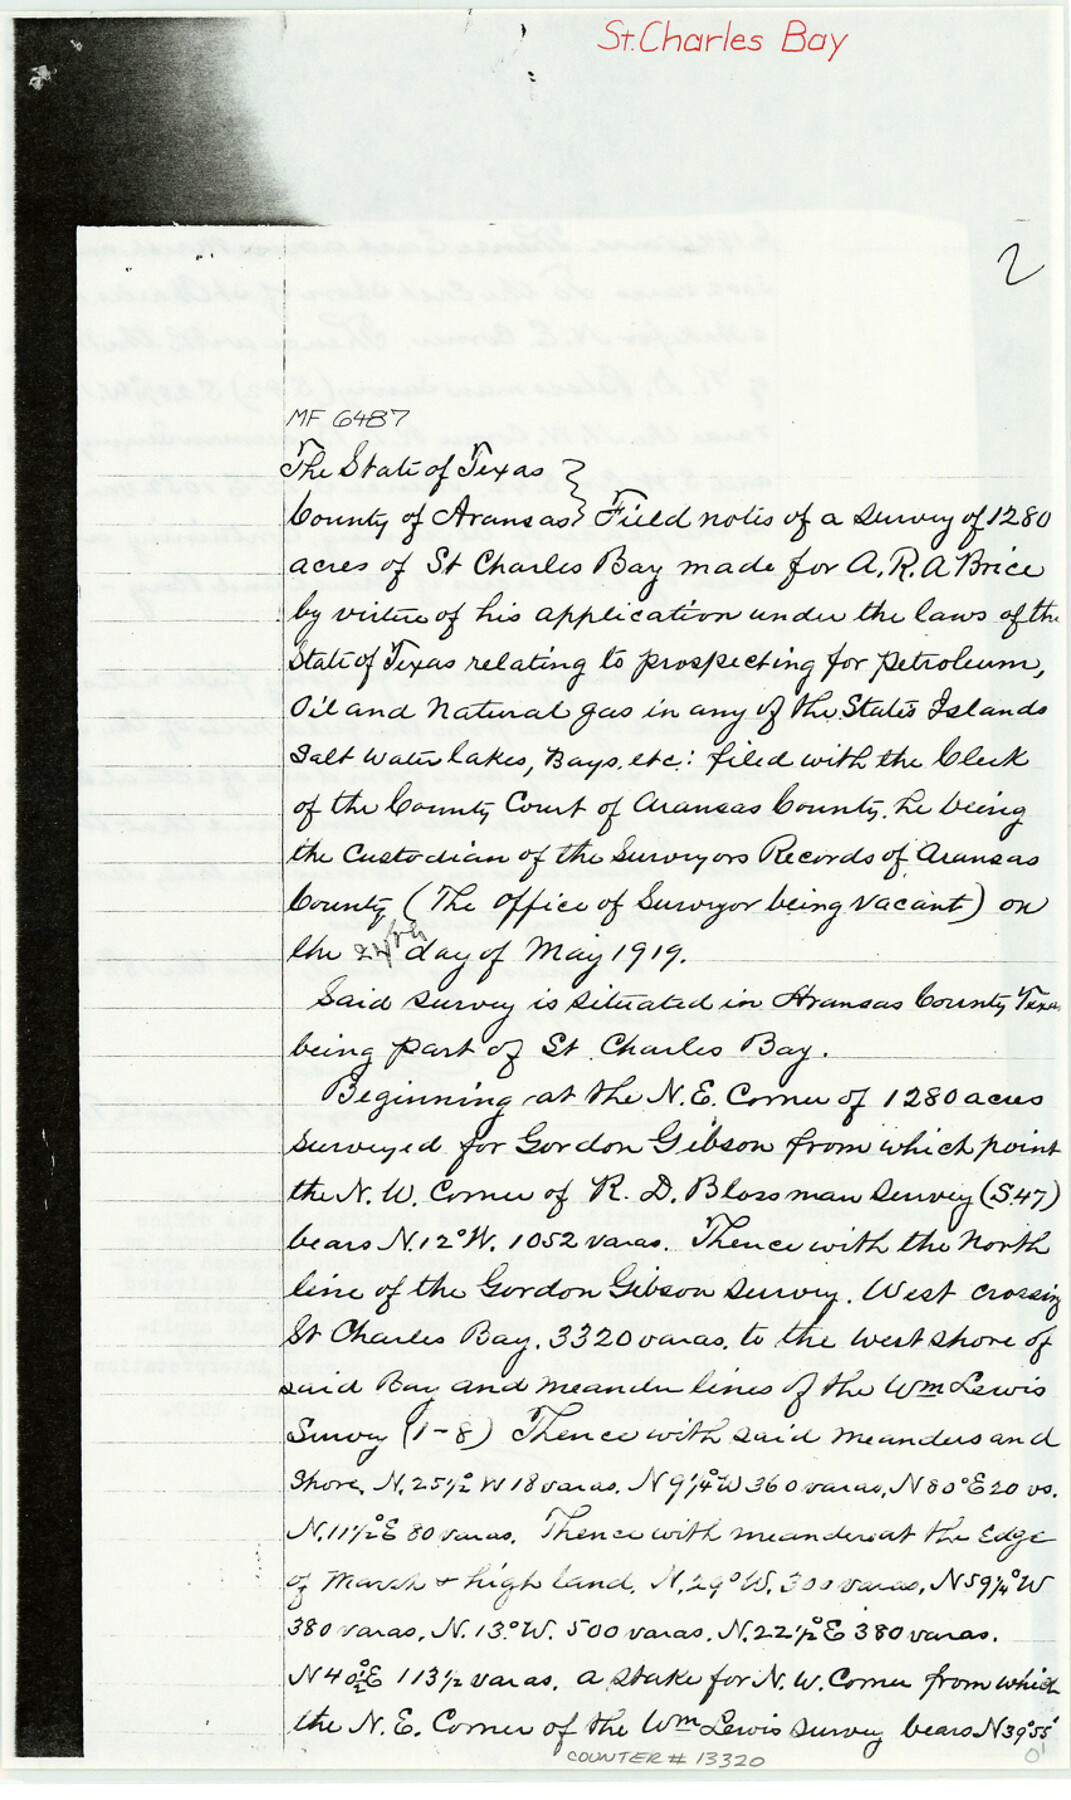 St. Charles Bay
2
MF 6487
The State of Texas }
County of Aransas } Field notes of a survey of 1280
acres of St Charles Bay made for A. R. A Brice
by virtue of his application under the laws of the
State of Texas relating to prospecting for petroleum,
Oil and Natural gas in any of the States Islands
Salt Water lakes, Bays, etc: filed with the Clerk
of the County Court of Aransas County, he being
the Custodian of the Surveyors Records of Aransas
County (The Office of Surveyor being vacant) on
the 24th day of May 1919.
Said survey is situated in Aransas County Texas
being part of St. Charles Bay.
Beginning at the N.E. Corner of 1280 acres
surveyed for Gordon Gibson from which point
the N. W. Corner of R. D. Blossman Survey (S.47)
bears N. 12° W. 1052 varas. Thence with the North
line of the Gordon Gibson Survey. West crossing
St Charles Bay. 3320 varas. to the west shore of
said Bay and meander lines of the Wm Lewis
Survey (1-8) Thence with said meanders and
Shore, N. 25 1/2° W 18 varas. N 9 1/4° W 360 varas, N 80° E 20 vs.
N. 11 1/2° E 80 varas. Thence with meanders at the edge
of Marsh & high land. N. 29° W. 300 varas, N 59 1/4° W
380 varas. N. 13° W. 500 varas. N. 22 1/2° E 380 varas.
N 40 1/2° E 113 1/2 varas. a stake for N. W. Corner from which
the N. E. Corner of the Wm Lewis survey bears N 39° 55'
COUNTER # 13320